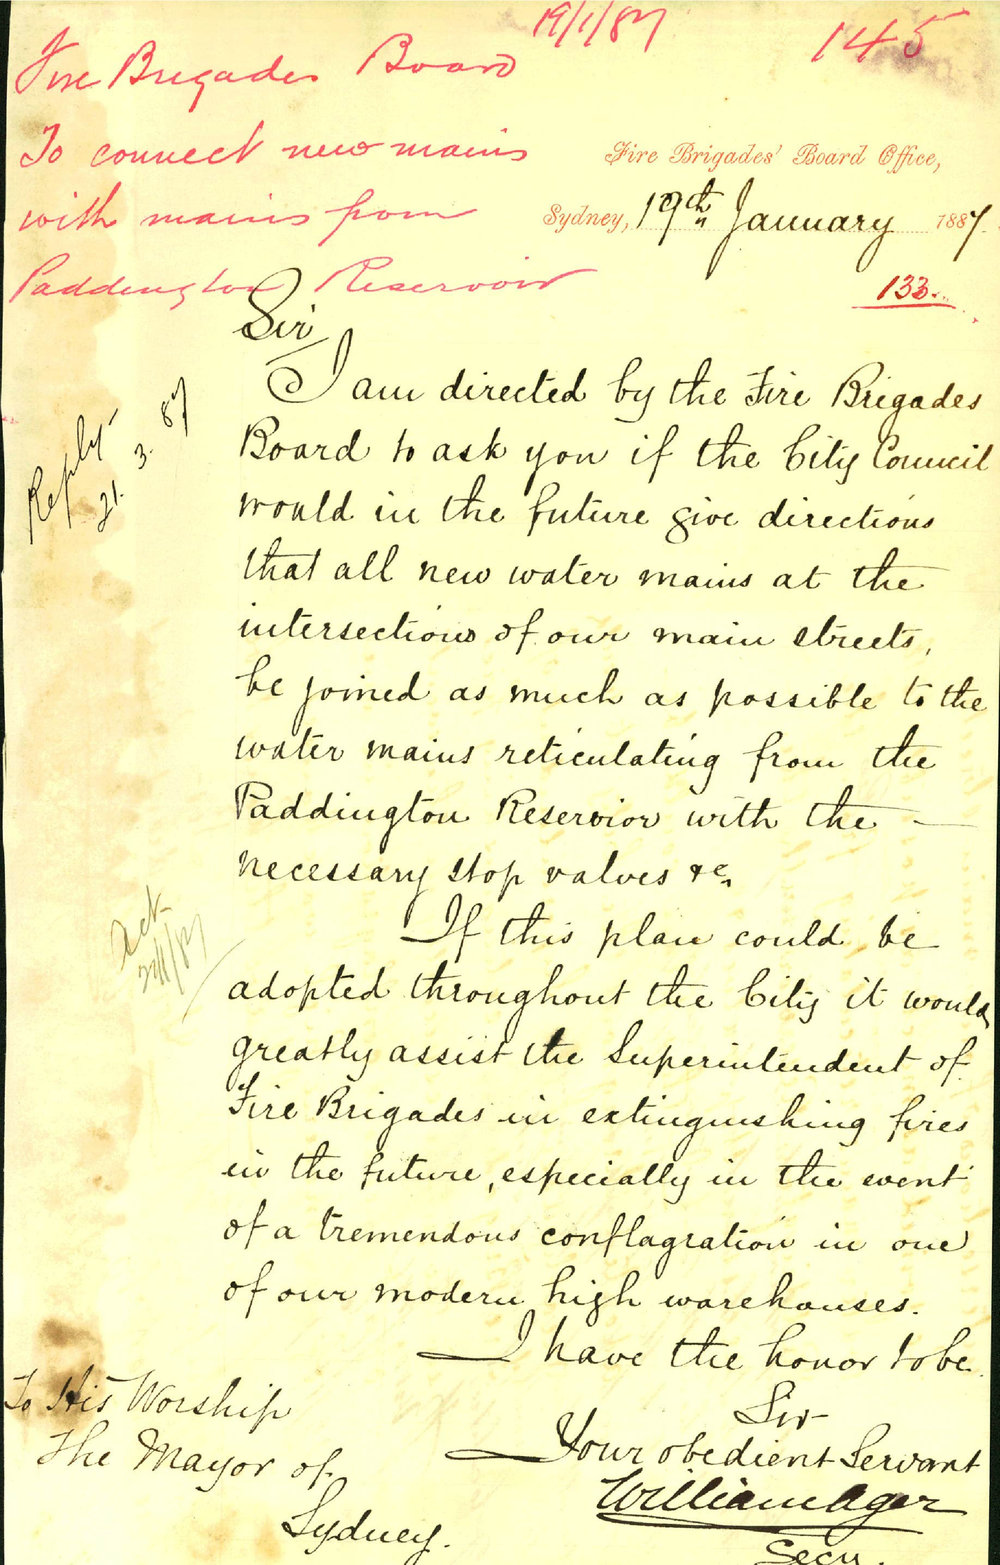 19/1/87
145
Fire Brigades Board
To connect new mains
with mains from
Paddington Reservoir
Fire Brigades' Board Office,
Sydney, 19th January 1887.
133.
Sir
I am directed by the Fire Brigades
Board to ask you if the City Council
would in the future give directions
that all new water mains at the
intersections of our main streets,
be joined as much as possible to the
water mains reticulating from the
Paddington Reservior with the
necessary stop valves &c.
Reply
21. 3. 87
If this plan could be
adopted throughout the City it would
greatly assist the Superintendent of
Fire Brigades in extinguishing fires
in the future, especially in the event
of a tremendous conflagration in one
of our modern high warehouses.
Ack
I have the honor to be
Sir
Your obedient Servant
William Ager
Secy.
To His Worship
The Mayor of
Sydney.